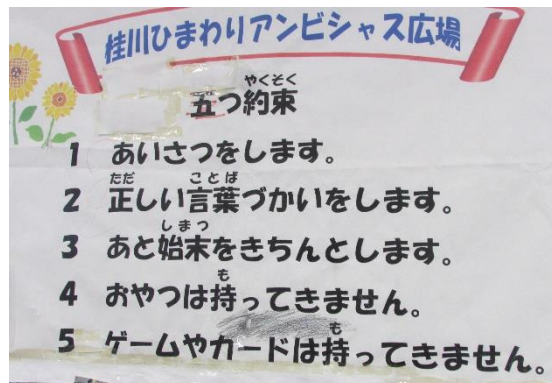 桂川ひまわりアンビシャス広場
五つ約束
1 あいさつをします。
2 正しい言葉づかいをします。
3 あと始末をきちんとします。
4 おやつは持ってきません。
5 ゲームやカードは持ってきません。